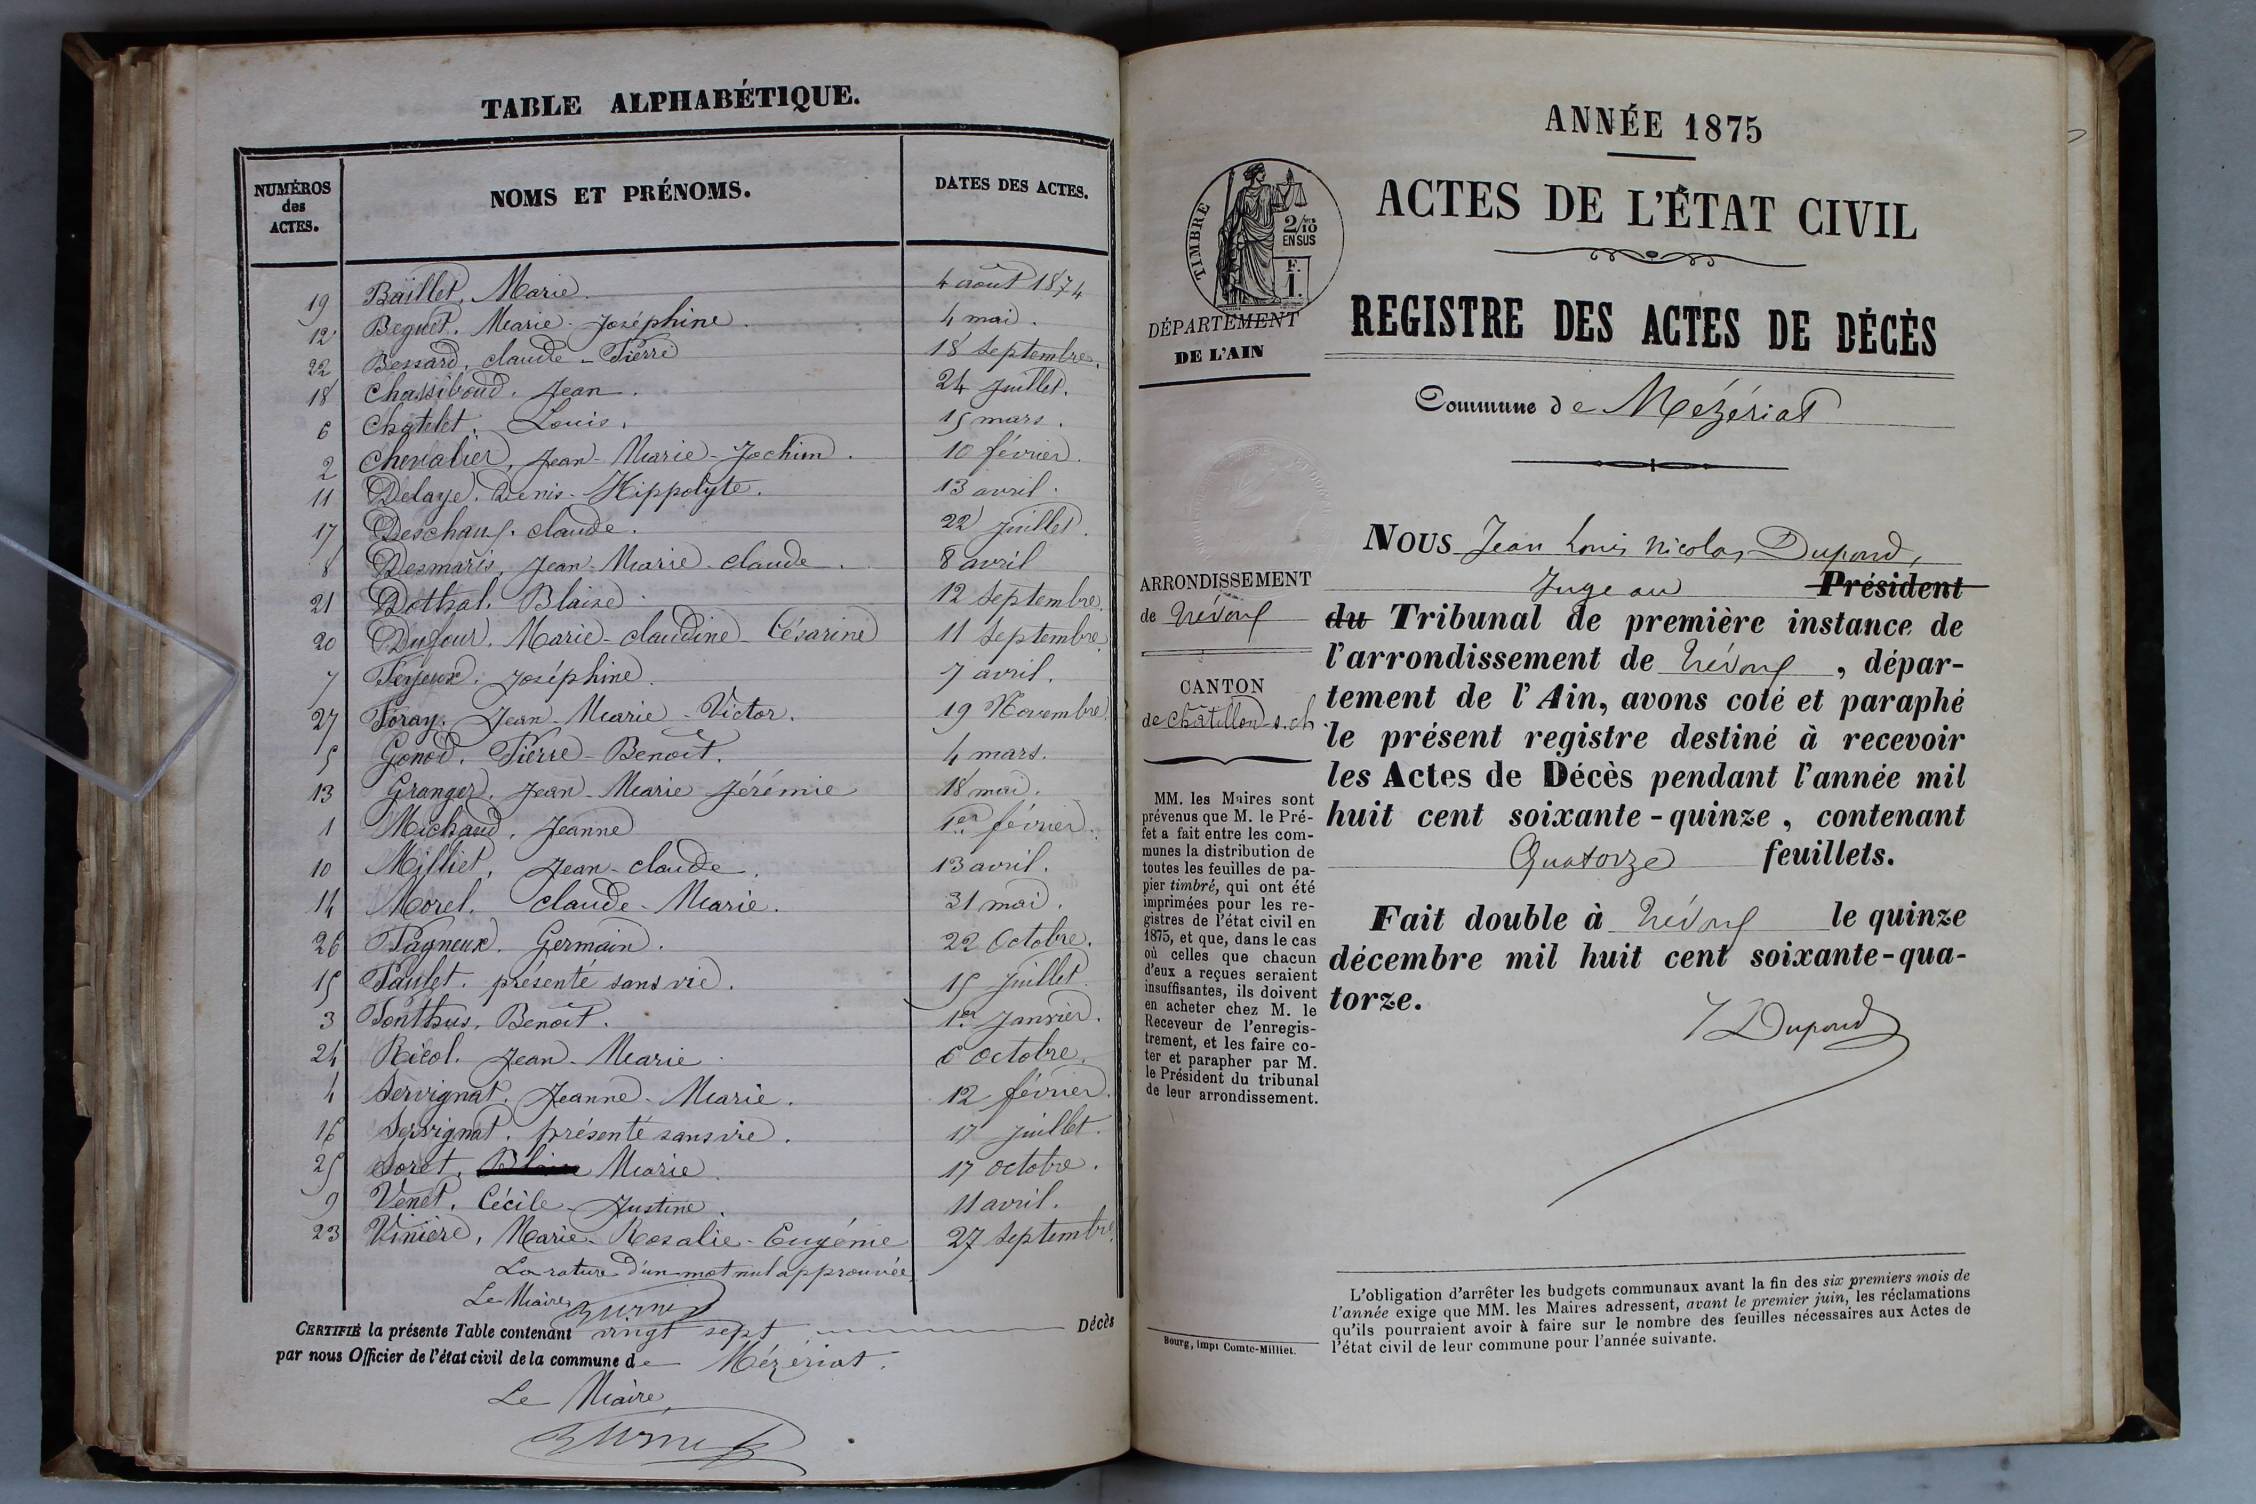 TABLE ALPHABÉTIQUE.
NUMÉROS des ACTES.
NOMS ET PRÉNOMS.
DATES DES ACTES.
19 Baillet, Marie. 4 août 1874
12 Beguet. Marie-Joséphine. 4 mai.
22 Bessard, claude-Pierre 18 septembre.
18 Chassiboud. Jean. 24 juillet.
6 Chatelet. Louis. 15 mars.
2 Chevalier, Jean-Marie-Jochim. 10 février.
11 Delaye. Denis-Hippolyte. 13 avril.
17 claude. 22 juillet.
8 Desmaris, Jean-Marie-claude. 8 avril
21 Dothal. Blaise 12 septembre.
20 Dufour. Marie-claudine-Césarine 11 septembre.
7 Joséphine. 7 avril.
27 Foray. Jean-Marie-Victor. 19 Novembre.
5 Gonod. Pierre-Benoit. 4 mars.
13 Granger. Jean-Marie Jérémie 18 mai.
1 Michaud, Jeanne 1er février.
10 Milliet, Jean-claude. 13 avril.
14 Morel. claude-Marie. 31 mai.
26 Pagneux. Germain. 22 Octobre.
15 Paulet. présenté sans vie. 15 juillet
3 Ponthus, Benoit. 1er janvier.
24 Ricol. Jean-Marie 6 octobre.
4 Servignat. Jeanne-Marie. 12 février.
16 Servignat. présenté sans vie. 17 juillet.
25 Soret, Marie 17 octobre.
9 Venet. Cécile-Justine. 11 avril.
23 Vinière, Marie-Rosalie-Eugénie 27 septembre.
La rature d'un mot nul approuvée
Le Maire
CERTIFIÉ la présente Table contenant vingt sept Décès
par nous Officier de l'état civil de la commune de Mézériat.
Le Maire,
ANNÉE 1875
ACTES DE L'ÉTAT CIVIL
TIMBRE
2/10 EN SUS
F. 1.
DÉPARTEMENT
DE L'AIN
REGISTRE DES ACTES DE DÉCÈS
Commune de Mézériat
ARRONDISSEMENT
de Trévoux
CANTON
de Châtillon-s.ch
MM. les Maires sont
prévenus que M. le Pré-
fet a fait entre les com-
munes la distribution de
toutes les feuilles de pa-
pier timbré, qui ont été
imprimées pour les re-
gistres de l'état civil en
1875, et que, dans le cas
où celles que chacun
d'eux a reçues seraient
insuffisantes, ils doivent
en acheter chez M. le
Receveur de l'enregis-
trement, et les faire co-
ter et parapher par M.
le Président du tribunal
de leur arrondissement.
Bourg, impr Comte-Milliet.
NOUS Jean Louis Nicolas Dupond,
Juge au Président
du Tribunal de première instance de
l'arrondissement de Trévoux, dépar-
tement de l'Ain, avons coté et paraphé
le présent registre destiné à recevoir
les Actes de Décès pendant l'année mil
huit cent soixante-quinze, contenant
Quatorze feuillets.
Fait double à Trévoux le quinze
décembre mil huit cent soixante-qua-
torze.
Dupond
L'obligation d'arrêter les budgets communaux avant la fin des six premiers mois de
l'année exige que MM. les Maires adressent, avant le premier juin, les réclamations
qu'ils pourraient avoir à faire sur le nombre des feuilles nécessaires aux Actes de
l'état civil de leur commune pour l'année suivante.